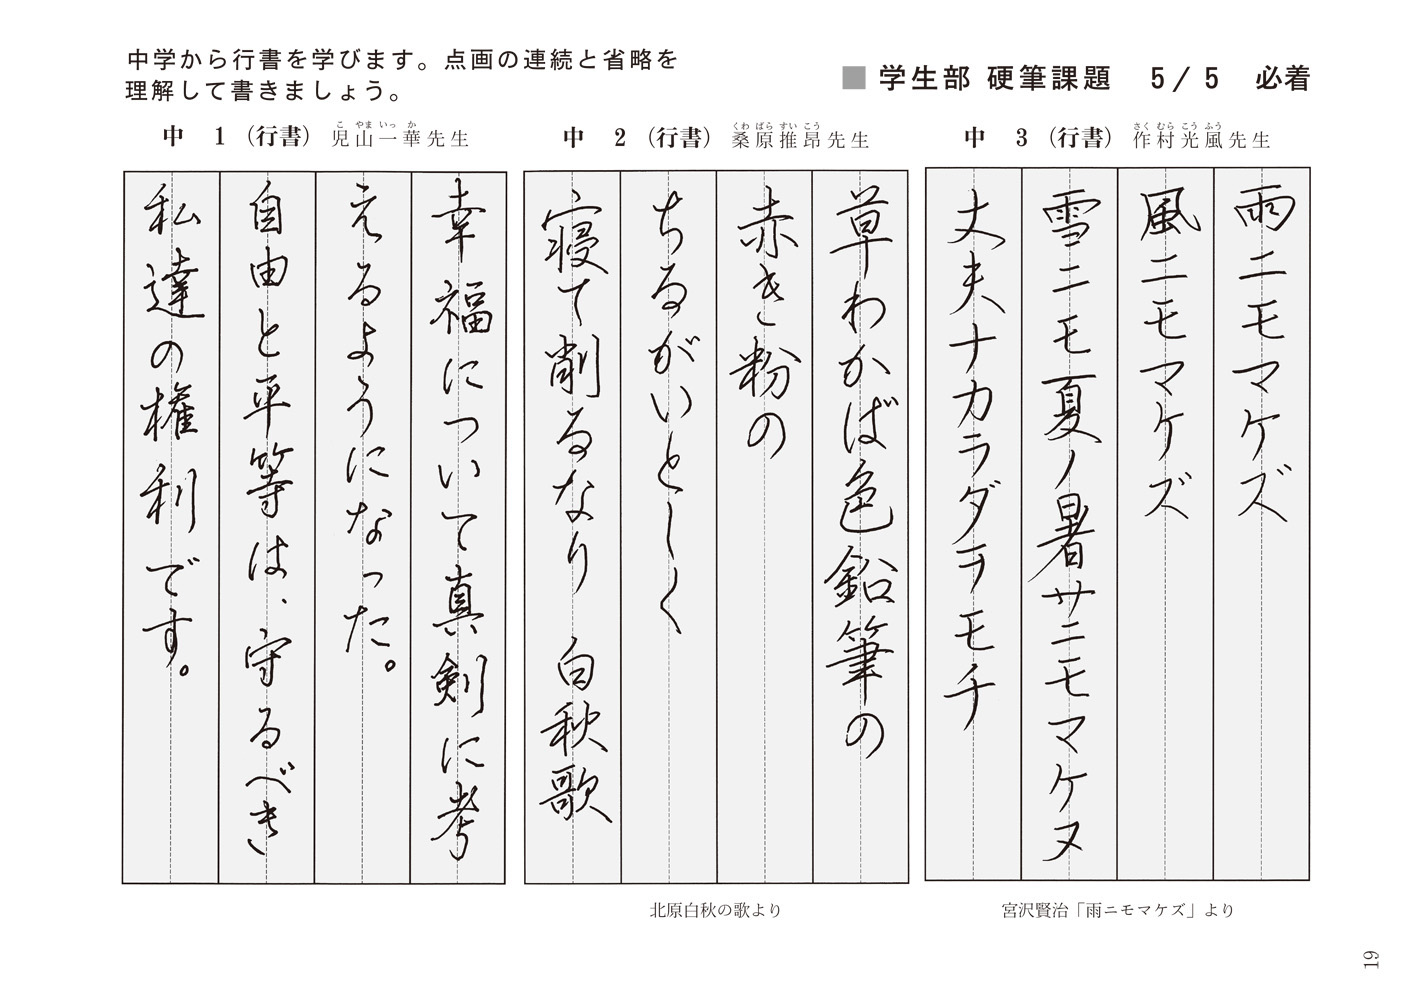 中学から行書を学びます。点画の連続と省略を
理解して書きましょう。
■ 学生部 硬筆課題 5/5 必着
中 3 (行書) 作村光風先生
さく むら こう ふう
雨ニモマケズ
風ニモマケズ
雪ニモ夏ノ暑サニモマケヌ
丈夫ナカラダヲモチ
宮沢賢治「雨ニモマケズ」より
中 2 (行書) 桑原推昂先生
くわ ばら すい こう
草わかば色鉛筆の
赤き粉の
ちるがいとしく
寝て削るなり 白秋歌
北原白秋の歌より
中 1 (行書) 児山一華先生
こ やま いっ か
幸福について真剣に考
えるようになった。
自由と平等は、守るべき
私達の権利です。
19